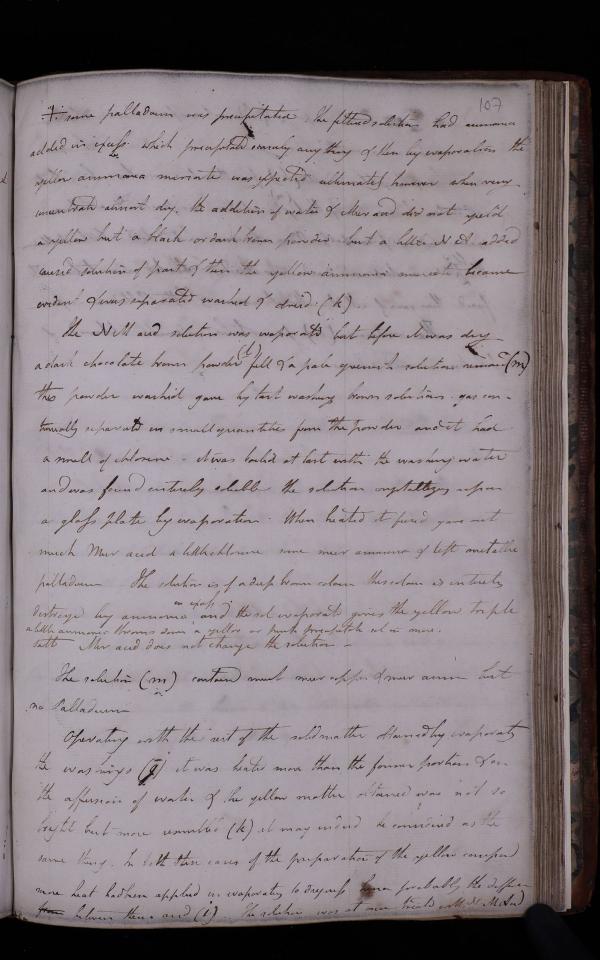 107
some palladium was precipitated. The filtered solution had ammonia
added in excess which precipitated scarcely any thing & then by evaporation the
yellow ammonia muriate was effected ultimately however when very
concentrate almost dry. the addition of water & Mur acid did not yield
a yellow but a black or dark brown powder but a little N A added
caused solution of part & then the yellow ammonia muriate became
evident & was separated washed & dried (k)
The N M acid solution was evaporated but before it was dry
a dark chocolate brown powder (l) fell & a pale greenish solution remained (m)
this powder washed gave by last washing brown solutions. gas con-
tinually separated in small quantities from the powder and it had
a smell of chlorine - it was boiled at last with the washing water
and was found entirely soluble the solution crystallizing upon
a glass plate by evaporation. When heated it fused gave out
much Mur acid a little chlorine some mur ammonia & left metallic
palladium The solution is of a deep brown colour this colour is entirely
destroyed by ammonia in excess & and the sol evaporated gives the yellow triple
a little ammonia throws down a yellow or pink precipitate sol in more.
salt Mur acid does not change the solution -
The solution (m) contained much mur copper & mur amm but
no Palladium
Operating with the rest of the solid matter obtained by evaporating
the washings (g) it was heated more than the former portion & on
the affusion of water & the yellow matter obtained was not so
bright but more resembled (k) it may indeed be considered as the
same thing. In both these cases of the preparation of the yellow compound
more heat had been applied in evaporating to dryness hence probably the difference
between them and (i). The solution was at once treated with N M Acid